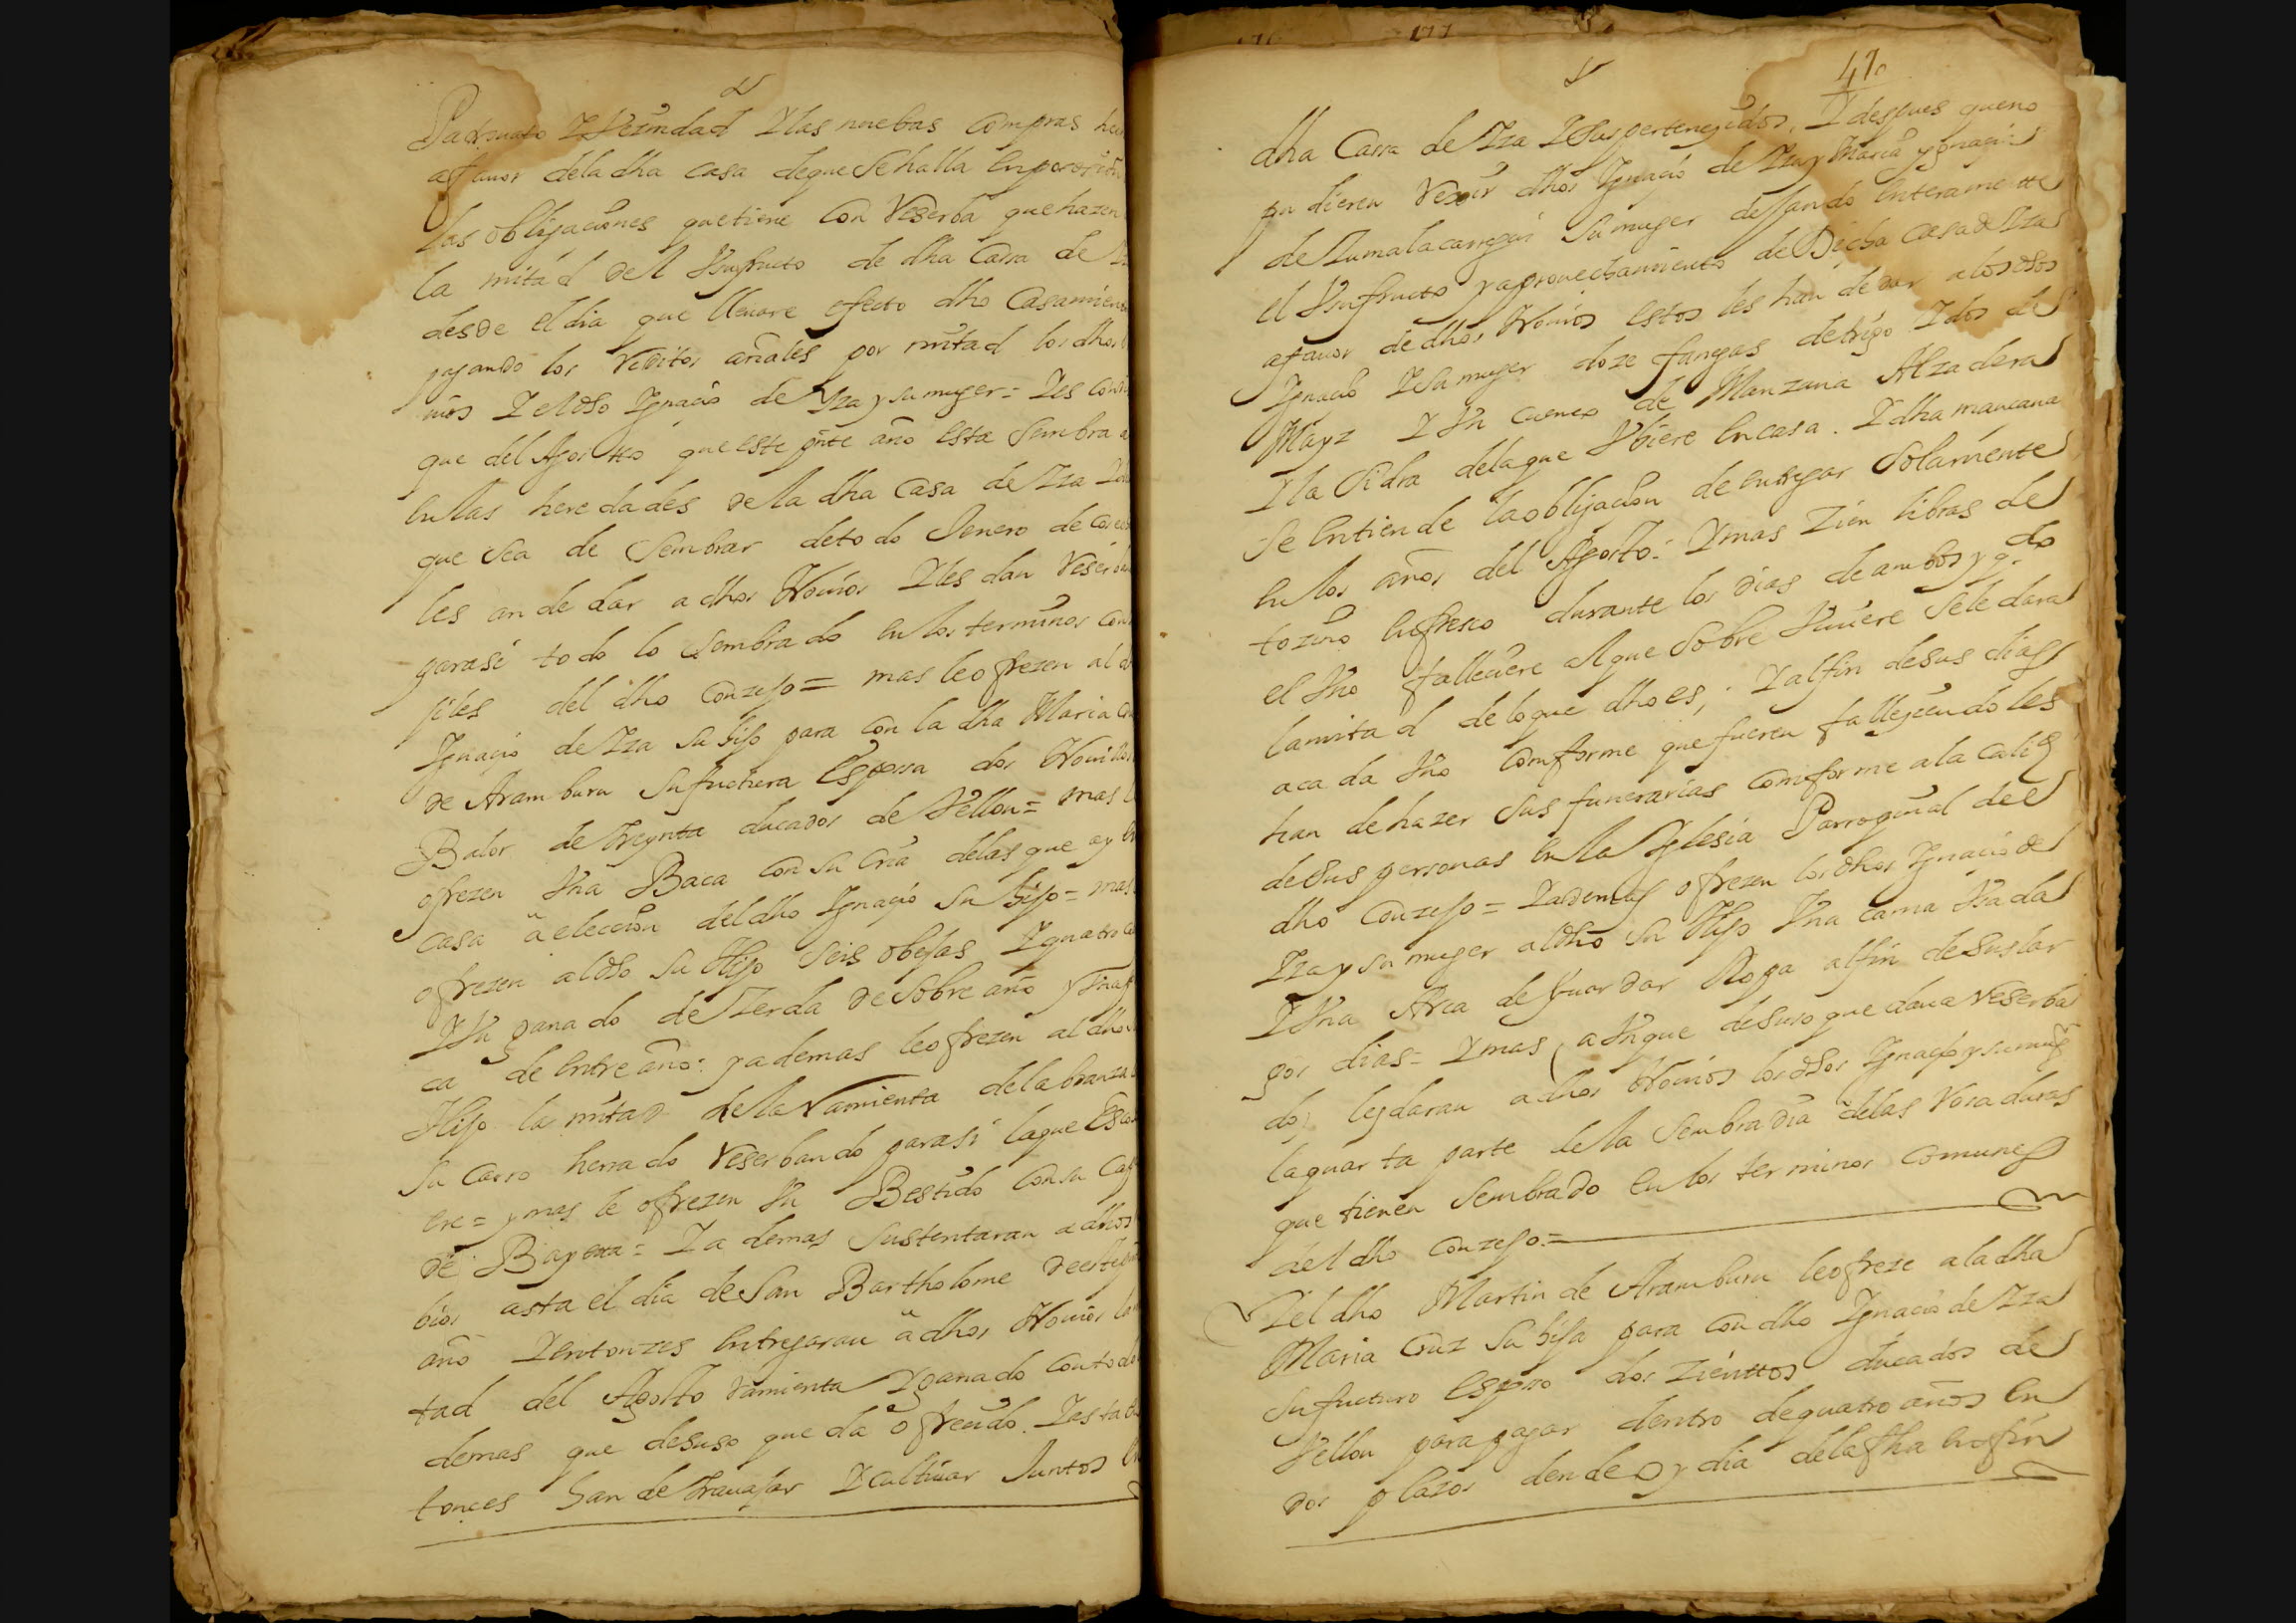 Patronato Y Vezindad Y las nuebas Compras
a fauor dela dha casa deque Se halla
las obligaciones que tiene Con Reserba que hazen
la mitad del Vsufructo de dha Cassa de
desde el dia que lleuare efecto dho Casamien
pagando los Reditos añales por mitad los dhos
uios Y el dho Ygnacio de Yza y su muger = Yes
que del Agostto que este pnte año esta Sembra
en las heredades de la dha Casa de Yza
que sea de Sembrar detodo Jenero de
les an de dar a dhos Nouios Y les dan Reser
parasi todo lo Sembrado en los terminos
jiles del dho Conzejo = mas le ofrezen al
Ygnacio de Yza su hijo para con la dha Maria
de Aramburu su fuctura Esposa dos Nouillos
Balor de treynta ducados de Vellon = mas
ofrezen Vna Baca con su Cria delas que ay
casa â eleccion del dho Ygnacio su hijo = mas
ofrezen al dho su Hijo Seis obejas Y quatro
Y Vn ganado de Zerda de Sobre año y Vna
ca de entre año: y ademas le ofrezen al dho
Hijo la mitad de la Ramienta dela branza
su Carro herrado Reserbando parasi la que
ere = y mas le ofrezen Vn Bestido Con su
de Bayeta = Y a demas Sustentaran a dhos
bios asta el dia de San Bartholome
año Y entonzes entregaran â dhos Nouios la
tad del Agosto Ramienta Y ganado con todo
demas que desuso queda ofrecido. Y asta
tonces han de trauajar Y cultiuar Juntos
177
41
dha Cassa de Yza Y sus pertenezidos. Y despues que no
pudieren Rexir dhos Ygnacio de Yza y Maria Ygnacia
de Zumalacarregui su muger dejando enteramente
el Vsufructo y aprouechamiento de Dicha Casa de Yza
a fauor de dhos Nouios estos les han de dar a los dhos
Ygnacio Y su muger doze fanegas de trigo Y dos de
Mayz Y Vn de Manzana Alzadera
Y la Sidra dela que Vbiere en casa. Y dha manzana
Se entiende la obligacion de entregar Solamente
en los años del Agosto: Y mas Zien libras de
tozino enfresco durante los dias de ambos y q.do
el Vno falleciere Al que Sobre Viuiere Sele dara
la mitad de lo que dho es; Y al fin de sus dias
a cada Vno Comforme que fueren falleciendo les
han de hazer sus funerarias Comforme a la Calid
de sus personas en la Yglesia Parroquial del
dho Conzejo = Y ademas ofrezen los dhos Ygnacio de
Yza y su muger al dho su Hijo Vna cama Vsada
Y Vna Arca de guardar Ropa al fin de sus lar
gos dias = Y mas (aVnque desuso queda Reserba
do) les daran a dhos Nouios los dhos Ygnacio y su mug
la quarta parte de la Sembradia de las Rocaduras
que tienen Sembrado en los terminos comunes
del dho Conzejo. =
Y el dho Martin de Aramburu le ofreze a la dha
Maria Cruz su hija para con dho Ygnacio de Yza
su fucturo Esposo dos Zienttos ducados de
Vellon para pagar dentro de quatro años en
dos plazos dende oy dia de la fha en fin